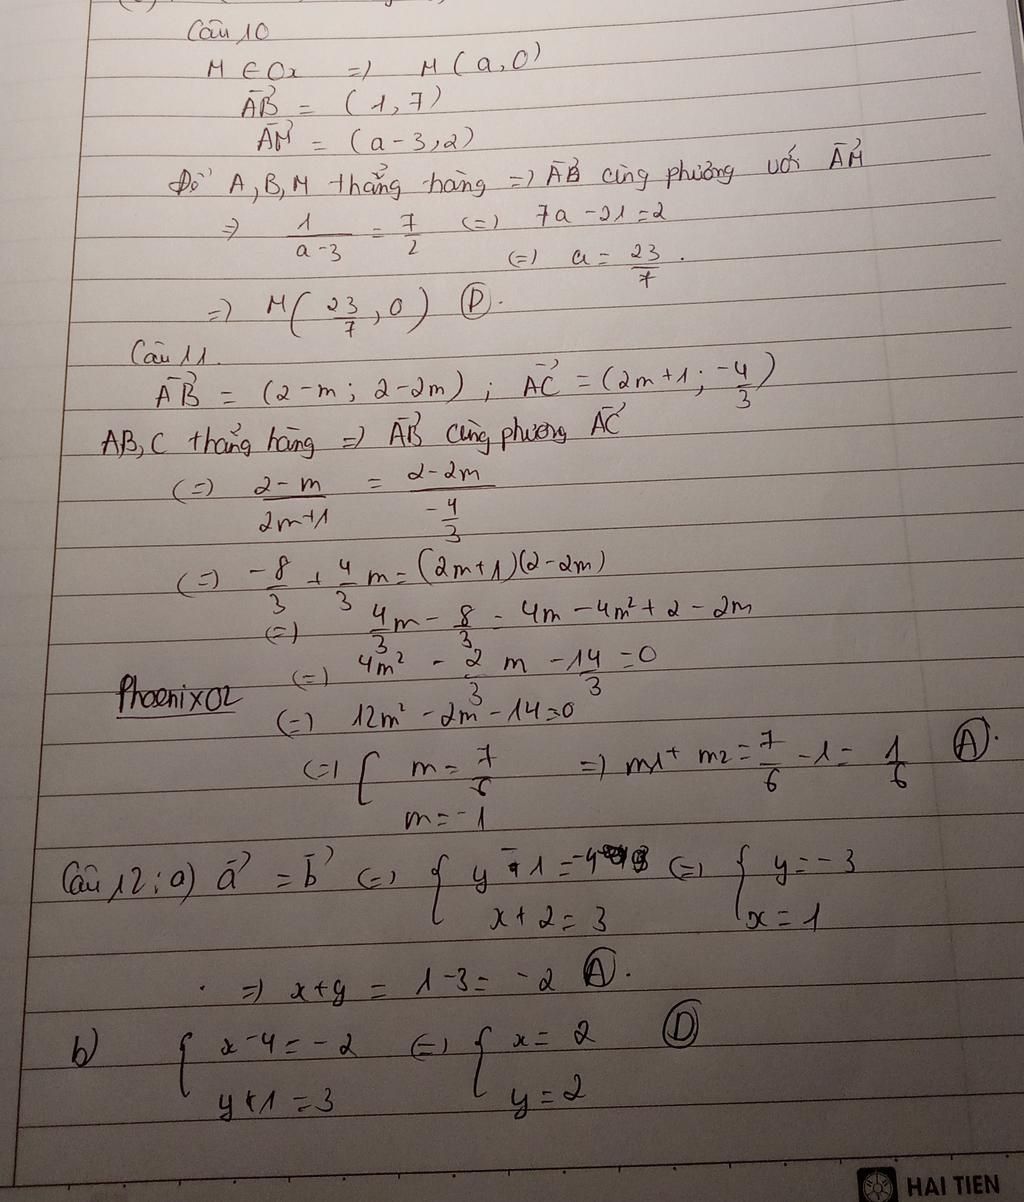 Câu 10
M ∈ Ox => M(a,0)
AB→ = (1,7)
AM→ = (a-3,2)
Để A,B,M thẳng hàng => AB→ cùng phương với AM→
=> 1/(a-3) = 7/2 <=> 7a - 21 = 2
<=> a = 23/7.
=> M(23/7, 0) Ⓓ.
Câu 11.
AB→ = (2-m; 2-2m); AC→ = (2m+1; -4/3)
AB,C thẳng hàng => AB→ cùng phương AC→
<=> (2-m)/(2m+1) = (2-2m)/(-4/3)
<=> -8/3 + 4/3 m = (2m+1)(2-2m)
<=> 4/3 m - 8/3 = 4m - 4m² + 2 - 2m
<=> 4m² - 2/3 m - 14/3 = 0
Phoenix02
<=> 12m² - 2m - 14 = 0
<=> [ m = 7/6 => m1 + m2 = 7/6 - 1 = 1/6 Ⓐ.
m = -1
Câu 12: a) a→ = b→ <=> { y - 1 = -4 <=> { y = -3
x + 2 = 3 x = 1
=> x+y = 1-3 = -2 Ⓐ.
b) { x-4 = -2 <=> { x = 2 Ⓓ
y+1 = 3 y = 2
HAI TIEN